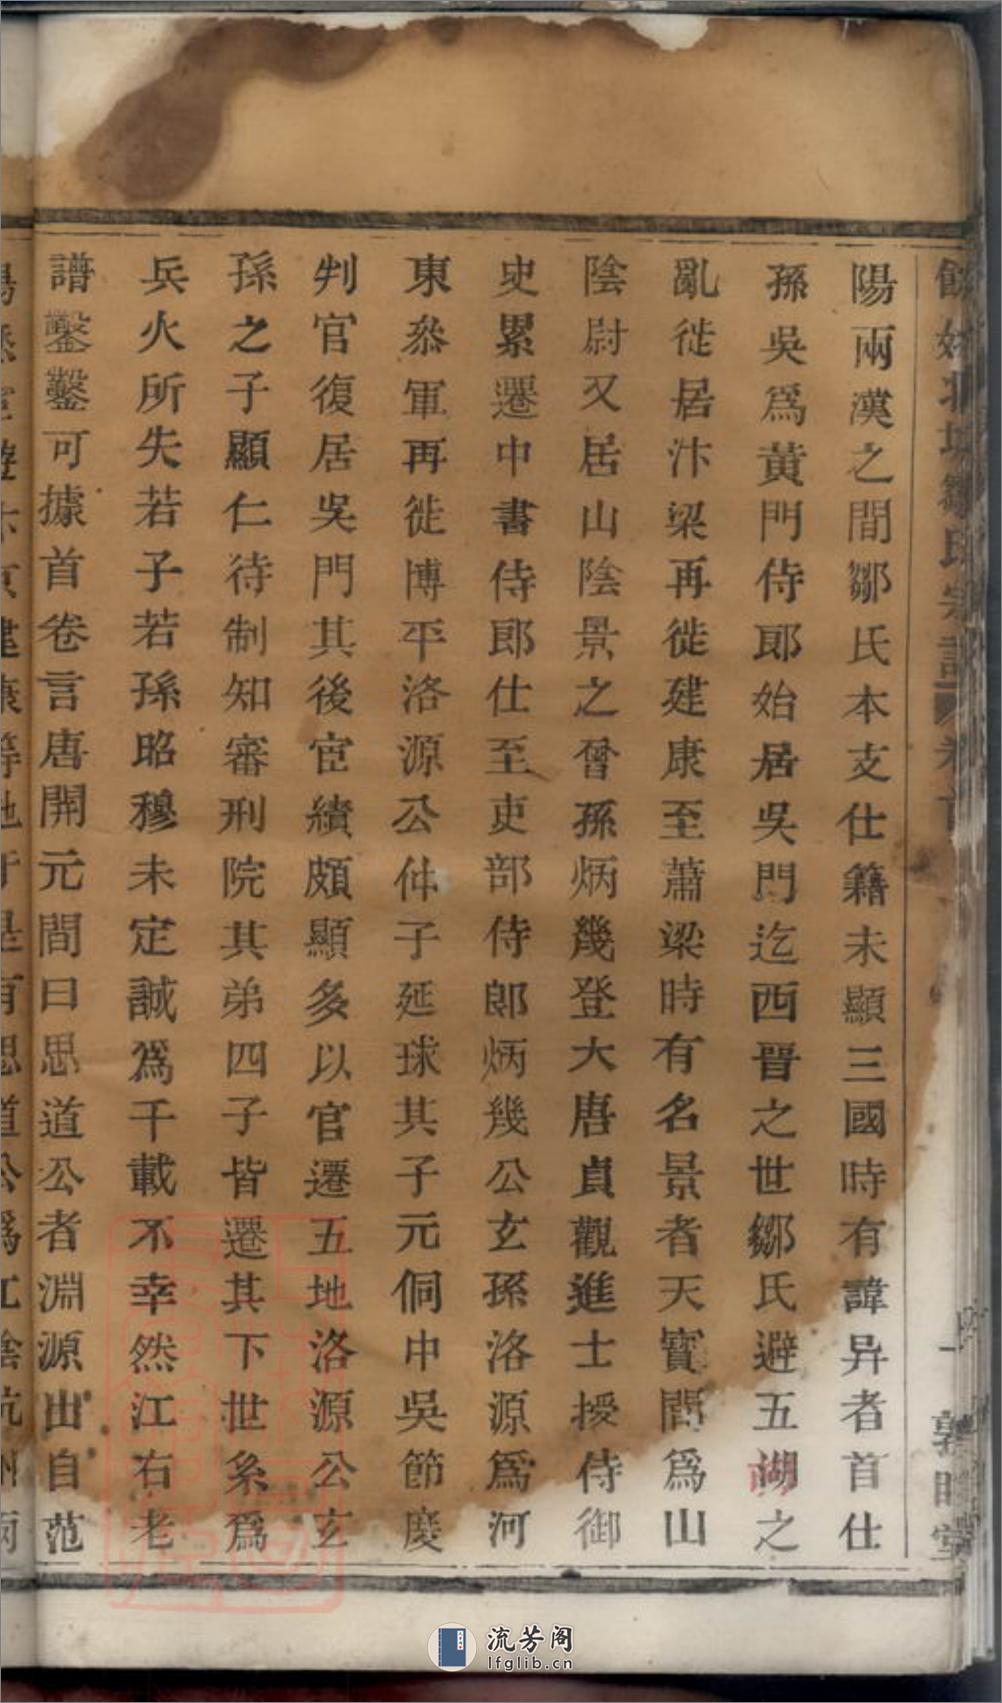 陽兩漢之間鄒氏本支仕籍未顯三國時有諱异者首仕
孫吳爲黄門侍郎始居吳門迄西晉之世鄒氏避五湖之
亂徙居汴梁再徙建康至蕭梁時有名景者天寶間爲山
陰尉又居山陰景之曾孫炳幾登大唐貞觀進士授侍御
史累遷中書侍郎仕至吏部侍郎炳幾公玄孫洛源爲河
東叅軍再徙博平洛源公仲子延球其子元侗中吳節度
判官復居吳門其後宦績頗顯多以官遷五地洛源公玄
孫之子顯仁待制知審刑院其弟四子皆遷其下世系爲
兵火所失若子若孫昭穆未定誠爲千載不幸然江右老
譜鑿鑿可據首卷言唐開元間曰思道公者淵源出自范
流芳阁
lfglib.cn